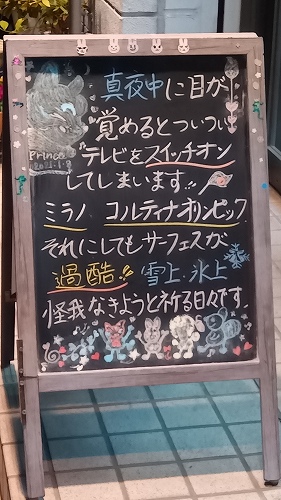 真夜中に目が
覚めるとついつい
テレビをスイッチオン
してしまいます!!
ミラノ コルティナオリンピック
それにしてもサーフェスが
過酷!! 雪上、氷上
怪我なきようと祈る日々です。
Prince